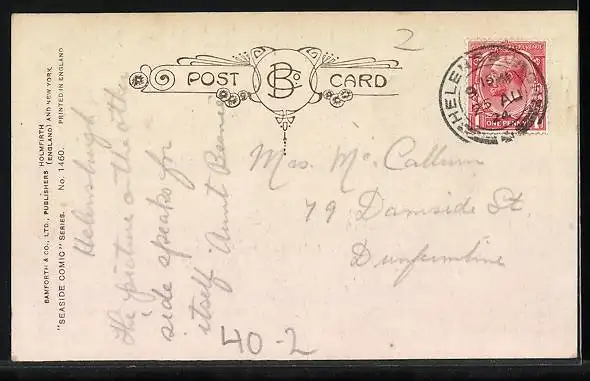 BAMFORTH & CO., LTD., PUBLISHERS HOLMFIRTH (ENGLAND) AND NEW YORK
"SEASIDE COMIC" SERIES. No. 1460. PRINTED IN ENGLAND
POST B & Co CARD
2
HELENS
9 15 PM
25 AU
24
POSTAGE REVENUE
ONE PENNY
Helensburgh
The picture on the other
side speaks for
itself Aunt
Mrs. Mc. Callum
79 Damside St.
Dunfermline
40-2